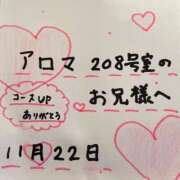 アロマ 208号室の
お兄様へ
コースUP
ありがとう
11月22日